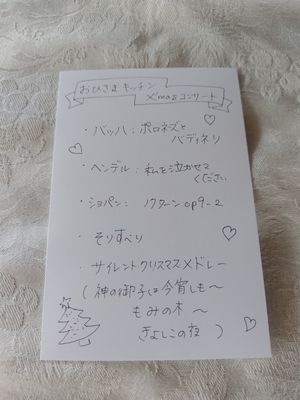 おひさまキッチン
X'masコンサート
・バッハ：ポロネズと
バディネリ
・ヘンデル：私を泣かせて
ください
・ショパン：ノクターン op9-2
・そりすべり
・サイレントクリスマスメドレー
(神の御子は今宵しも〜
もみの木〜
きよしこの夜)